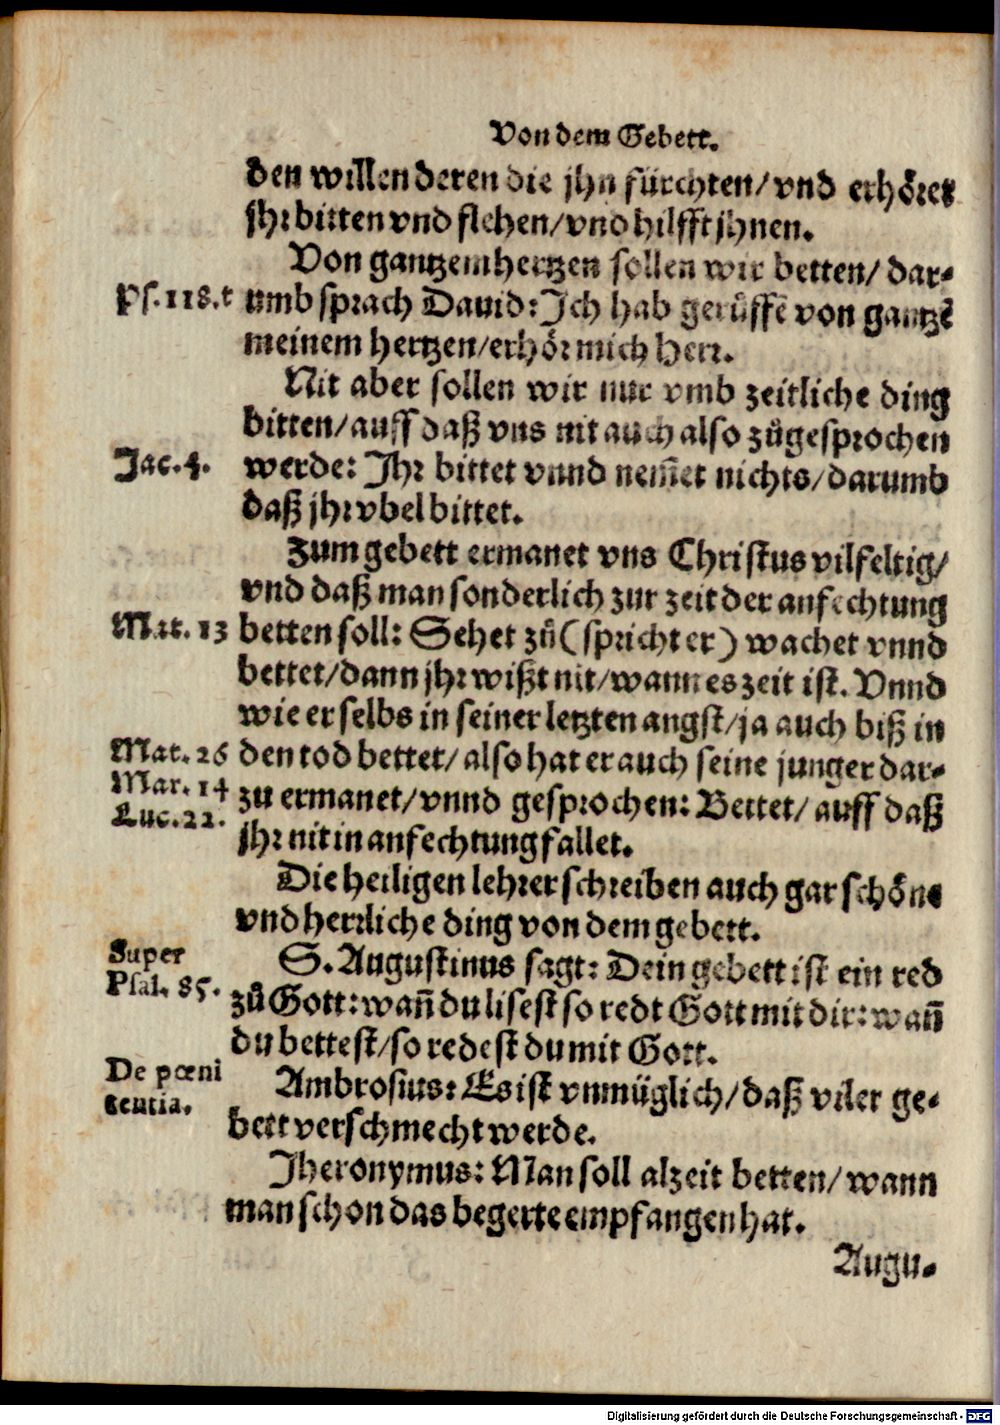 Von dem Gebett.
den willen deren die jhn fürchten/ vnd erhöret
jhr bitten vnd flehen/ vnd hilfft jhnen.
Von gantzem hertzen sollen wir betten/ dar-
Ps. 118. t umb sprach Dauid: Ich hab gerůffē von gantzē
meinem hertzen/ erhör mich Herr.
Nit aber sollen wir nur vmb zeitliche ding
bitten/ auff daß vns nit auch also zůgesprochen
Jac. 4. werde: Ihr bittet vnnd nem̄et nichts/ darumb
daß jhr vbel bittet.
Zum gebett ermanet vns Christus vilfeltig/
vnd daß man sonderlich zur zeit der anfechtung
Mat. 13 betten soll: Sehet zů (spricht er) wachet vnnd
bettet/ dann jhr wißt nit/ wann es zeit ist. Vnnd
wie er selbs in seiner letzten angst/ ja auch biß in
Mat. 26 den tod bettet/ also hat er auch seine junger dar-
Mar. 14 zu ermanet/ vnnd gesprochen: Bettet/ auff daß
Luc. 22. jhr nit in anfechtung fallet.
Die heiligen lehrer schreiben auch gar schöne
vnd herrliche ding von dem gebett.
Super S. Augustinus sagt: Dein gebett ist ein red
Psal. 85. zů Gott: wañ du lisest so redt Gott mit dir: wañ
du bettest/ so redest du mit Gott.
De pœni Ambrosius: Es ist vnmüglich/ daß viler ge-
tentia. bett verschmecht werde.
Jheronymus: Man soll alzeit betten/ wann
man schon das begerte empfangen hat.
Augu-
Digitalisierung gefördert durch die Deutsche Forschungsgemeinschaft - DFG